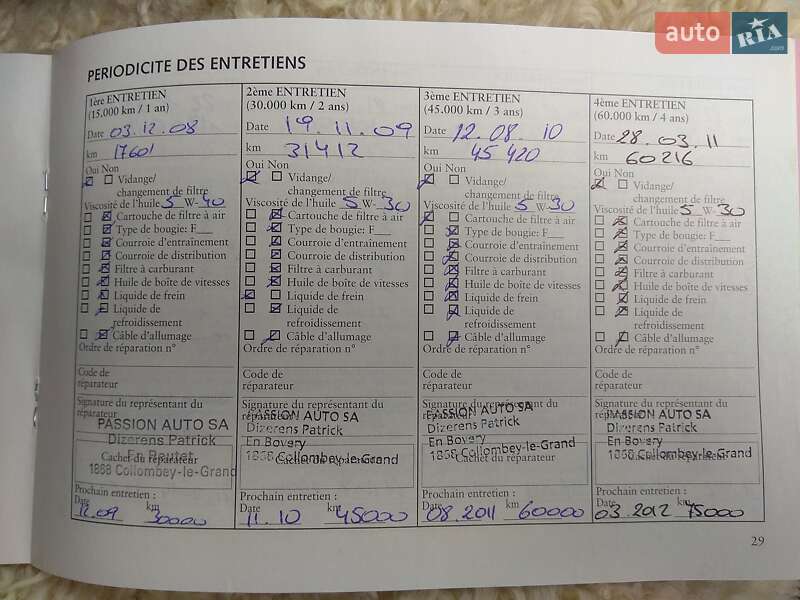 auto RIA .com
PERIODICITE DES ENTRETIENS
1ère ENTRETIEN
(15.000 km / 1 an)
Date 03.12.08
km 17601
Oui Non
Vidange/
changement de filtre
Viscosité de l'huile 5 W-40
Cartouche de filtre à air
Type de bougie: F___
Courroie d'entraînement
Courroie de distribution
Filtre à carburant
Huile de boîte de vitesses
Liquide de frein
Liquide de
refroidissement
Câble d'allumage
Ordre de réparation n°
Code de
réparateur
Signature du représentant du
réparateur
PASSION AUTO SA
Dizerens Patrick
Cachet du réparateur
1868 Collombey-le-Grand
Prochain entretien :
Date km
12.09 30000
2ème ENTRETIEN
(30.000 km / 2 ans)
Date 19.11.09
km 31412
Oui Non
Vidange/
changement de filtre
Viscosité de l'huile 5 W-30
Cartouche de filtre à air
Type de bougie: F___
Courroie d'entraînement
Courroie de distribution
Filtre à carburant
Huile de boîte de vitesses
Liquide de frein
Liquide de
refroidissement
Câble d'allumage
Ordre de réparation n°
Code de
réparateur
Signature du représentant du
réparateur
PASSION AUTO SA
Dizerens Patrick
En Bovery
Cachet du réparateur
1868 Collombey-le-Grand
Prochain entretien :
Date km
11.10 45000
3ème ENTRETIEN
(45.000 km / 3 ans)
Date 12.08.10
km 45420
Oui Non
Vidange/
changement de filtre
Viscosité de l'huile 5 W-30
Cartouche de filtre à air
Type de bougie: F___
Courroie d'entraînement
Courroie de distribution
Filtre à carburant
Huile de boîte de vitesses
Liquide de frein
Liquide de
refroidissement
Câble d'allumage
Ordre de réparation n°
Code de
réparateur
Signature du représentant du
réparateur
PASSION AUTO SA
Dizerens Patrick
En Bovery
1868 Collombey-le-Grand
Cachet du réparateur
Prochain entretien :
Date km
08.2011 60000
4ème ENTRETIEN
(60.000 km / 4 ans)
Date 28.03.11
km 60216
Oui Non
Vidange/
changement de filtre
Viscosité de l'huile 5 W-30
Cartouche de filtre à air
Type de bougie: F___
Courroie d'entraînement
Courroie de distribution
Filtre à carburant
Huile de boîte de vitesses
Liquide de frein
Liquide de
refroidissement
Câble d'allumage
Ordre de réparation n°
Code de
réparateur
Signature du représentant du
réparateur
PASSION AUTO SA
Dizerens Patrick
En Bovery
1868 Collombey-le-Grand
Cachet du réparateur
Prochain entretien :
Date km
03.2012 75000
29